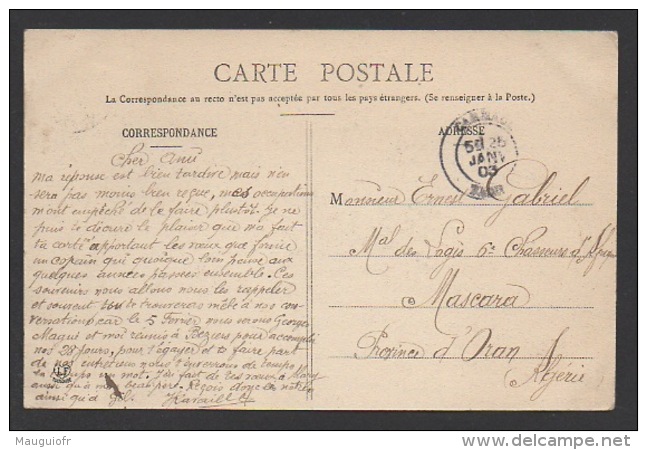 CARTE POSTALE
La Correspondance au recto n'est pas acceptée par tous les pays étrangers. (Se renseigner à la Poste.)
CORRESPONDANCE
ADRESSE
JANV
03
TARN
Cher Ami
ma réponse est bien tardive mais n'en
sera pas moins bien reçue, mes occupations
m'ont empêché de le faire plutôt. Je ne
puis te décrire le plaisir que m'a fait
ta carte apportant les vœux que forme
un copain qui quoique loin pense aux
quelques années passées ensemble. Ces
souvenirs nous allons nous les rappeler
et souvent tu te trouveras mêlé à nos con
versations, car le 5 Février nous serons Georges
Maqui et moi réunis à Béziers pour accomplir
nos 28 jours, pour t'égayer et te faire part
de nos entretiens nous t'enverrons de temps
en temps un mot. J'ai fait de tes vœux à Mary
ainsi qu'à mon beau père. Reçois donc les nôtres
ainsi qu'à
Monsieur Ernest Gabriel
Mal des Logis 6e Chasseurs d'Afrique
Mascara
Province d'Oran
Algérie
Mauguiofr
www.delcampe.net